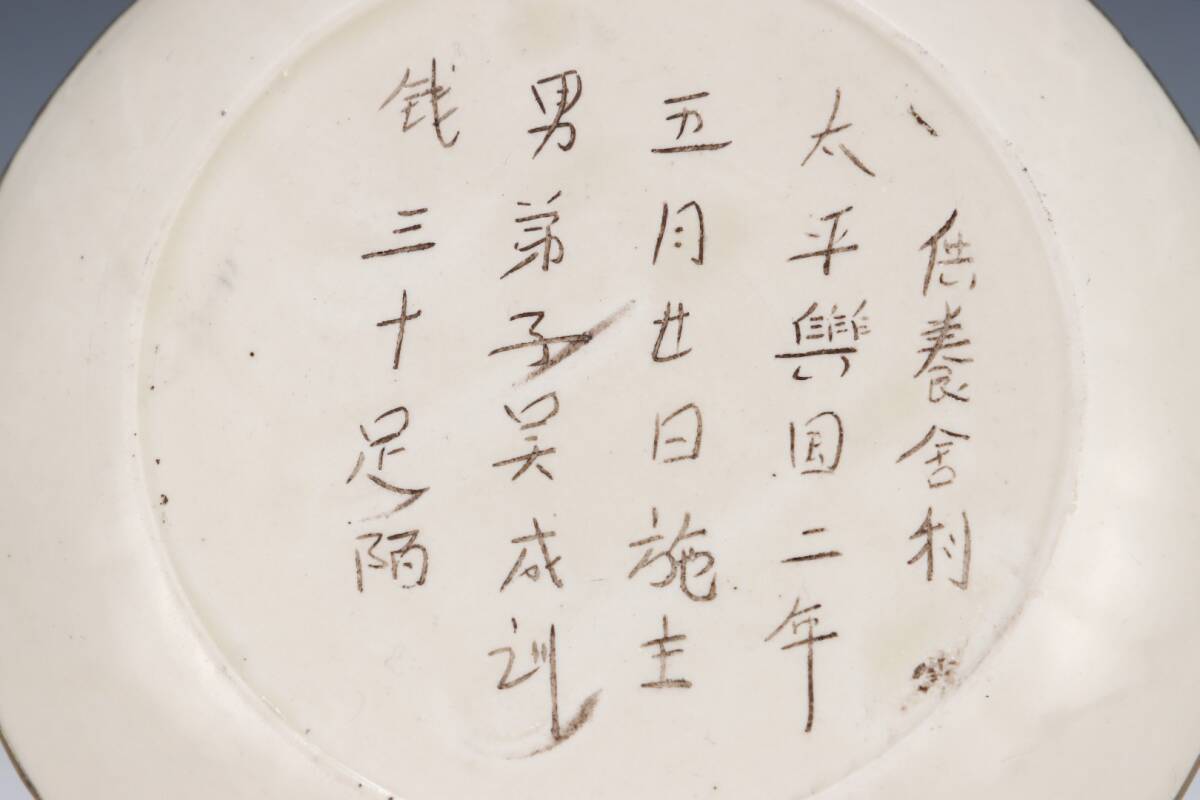 供養舍利
太平興囯二年
五月廿日施主
男弟子吴成訓
钱三十足陌